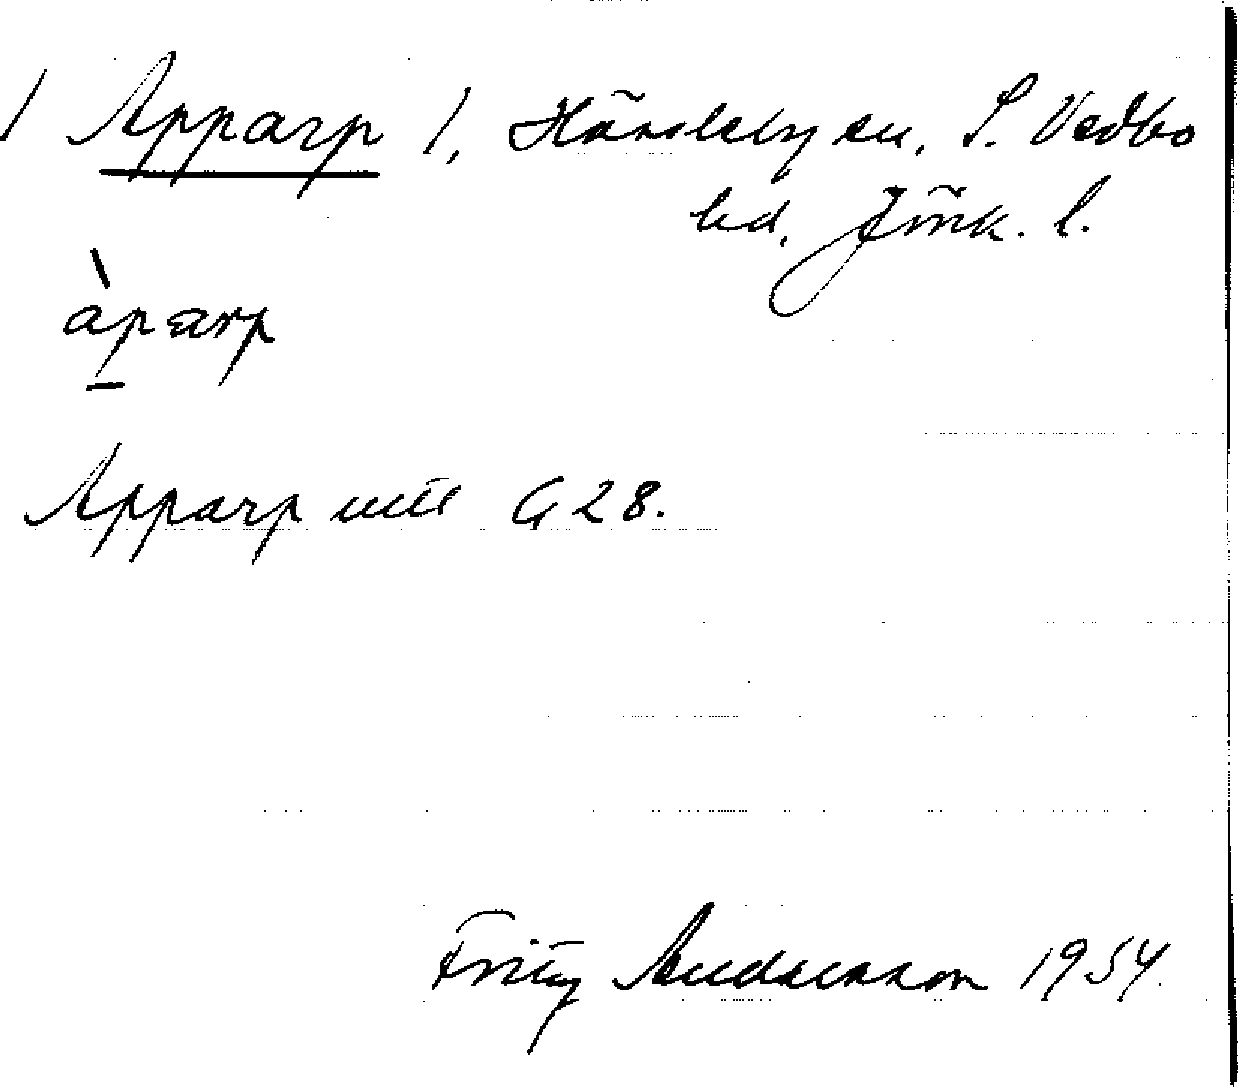 / Apparp 1, Hässleby sn, S. Vedbo
hd, Jönk. l.
àparp
Apparp G 28.
Fritz Andersson 1954.